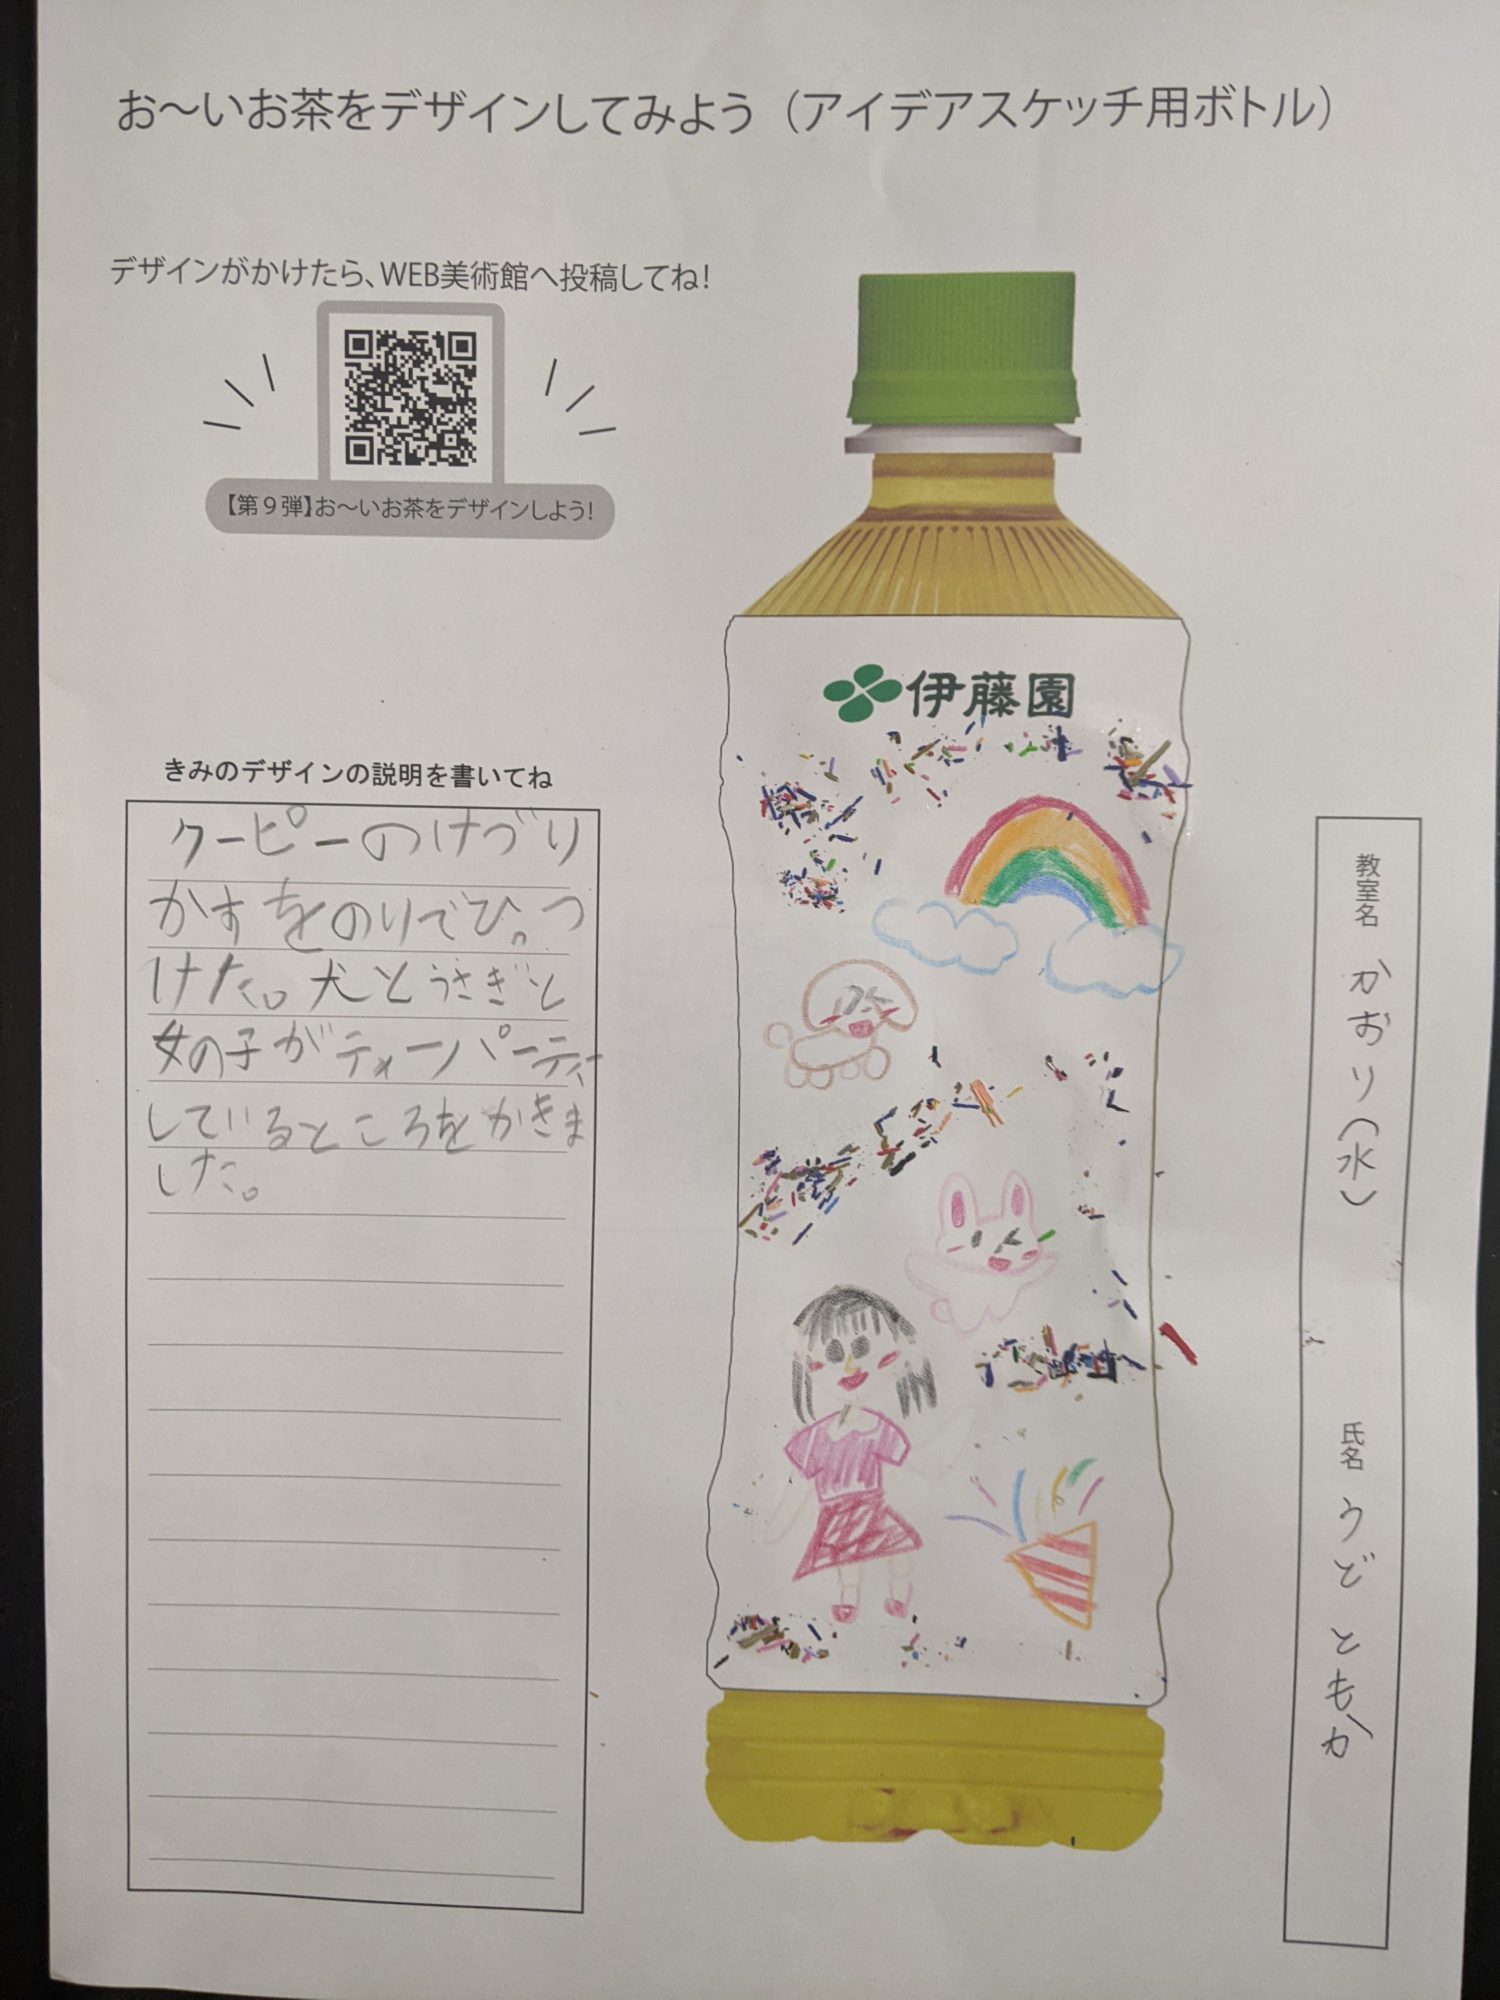 お～いお茶をデザインしてみよう（アイデアスケッチ用ボトル）
デザインがかけたら、WEB美術館へ投稿してね!
【第９弾】お～いお茶をデザインしよう!
伊藤園
きみのデザインの説明を書いてね
クーピーのけづり
かすをのりでひっつ
けた。犬とうさぎと
女の子がティーパーティ
しているところをかきま
した。
教室名 かおり(水)
氏名 うど ともか